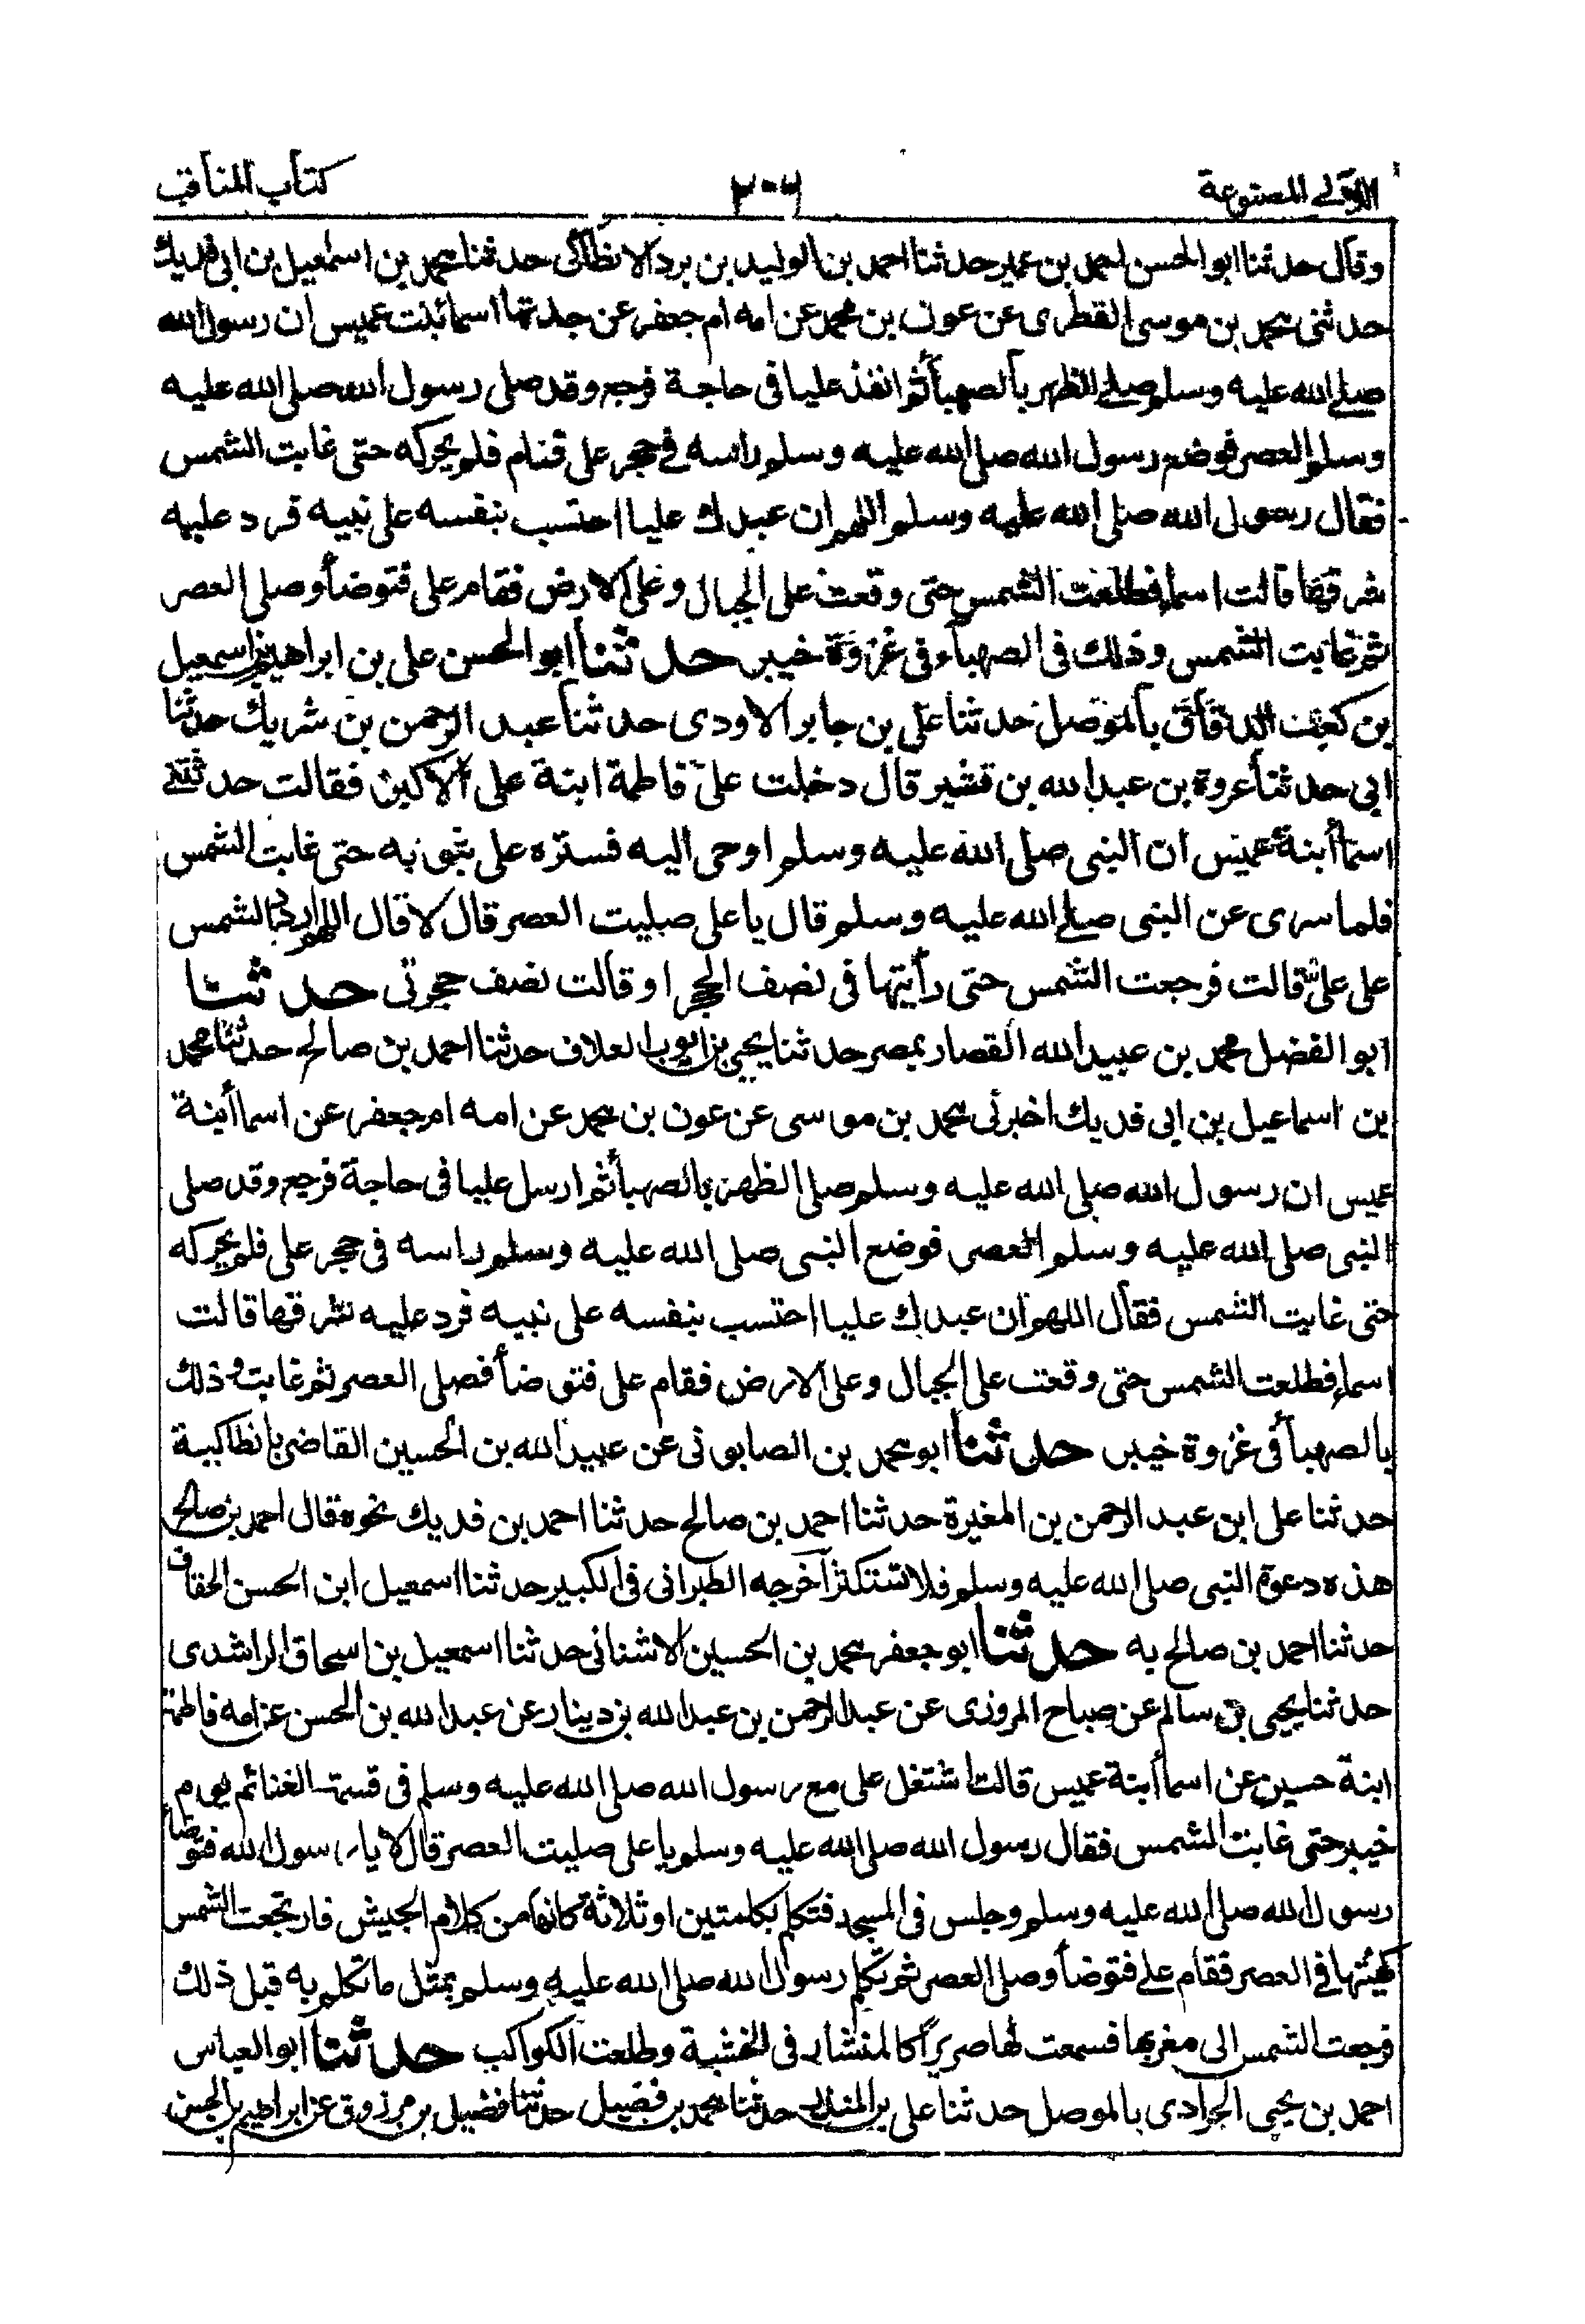 اللآلي المصنوعة ٢٠٦ كتاب المناقب
وقال حدثنا ابو الحسن احمد بن عمير حدثنا احمد بن الوليد بن برد الانطاكى حدثنا محمد بن اسمعيل بن ابى فديك
حدثنى محمد بن موسى القطرى عن عون بن محمد عن امه ام جعفر عن جدتها اسما بنت عميس ان رسول الله
صلى الله عليه وسلم صلى الظهر بالصهبا ثم انفذ عليا فى حاجة فرجع وقد صلى رسول الله صلى الله عليه
وسلم العصر فوضع رسول الله صلى الله عليه وسلم راسه فى حجر على فنام فلم يحركه حتى غابت الشمس
فقال رسول الله صلى الله عليه وسلم اللهم ان عبدك عليا احتسب بنفسه على نبيه فرد عليه
شرقها قالت اسماء فطلعت الشمس حتى وقعت على الجبال وعلى الارض فقام على فتوضأ وصلى العصر
ثم غابت الشمس وذلك فى الصهباء فى غزوة خيبر حدثنا ابو الحسن على بن ابراهيم بن اسمعيل
بن كعب الدقاق بالموصل حدثنا على بن جابر الاودى حدثنا عبد الرحمن بن شريك حدثنا
ابى حدثنا عروة بن عبد الله بن قشير قال دخلت على فاطمة ابنة على الاكبر فقالت حدثتنى
اسما ابنة عميس ان النبى صلى الله عليه وسلم اوحى اليه فستره على بثوبه حتى غابت الشمس
فلما سرى عن النبى صلى الله عليه وسلم قال يا على صليت العصر قال لا قال اللهم اردد الشمس
على على قالت فرجعت الشمس حتى رأيتها فى نصف الحجر او قالت نصف حجرتى حدثنا
ابو الفضل محمد بن عبيد الله القصار بمصر حدثنا يحيى بن ايوب العلاف حدثنا احمد بن صالح حدثنا محمد
بن اسماعيل بن ابى فديك اخبرنى محمد بن موسى عن عون بن محمد عن امه ام جعفر عن اسما ابنة
عميس ان رسول الله صلى الله عليه وسلم صلى الظهر بالصهبا ثم ارسل عليا فى حاجة فرجع وقد صلى
النبى صلى الله عليه وسلم العصر فوضع النبى صلى الله عليه وسلم راسه فى حجر على فلم يحركه
حتى غابت الشمس فقال اللهم ان عبدك عليا احتسب بنفسه على نبيه فرد عليه شرقها قالت
اسماء فطلعت الشمس حتى وقعت على الجبال وعلى الارض فقام على فتوضأ فصلى العصر ثم غابت وذلك
بالصهبا فى غزوة خيبر حدثنا ابو محمد بن الصابونى عن عبيد الله بن الحسين القاضى بانطاكية
حدثنا على ابن عبد الرحمن بن المغيرة حدثنا احمد بن صالح حدثنا احمد بن فديك نحوه قال احمد بن صالح
هذه دعوة النبى صلى الله عليه وسلم فلا تستكثر آخرجه الطبرانى فى الكبير حدثنا اسمعيل ابن الحسن الخفاف
حدثنا احمد بن صالح به حدثنا ابو جعفر محمد بن الحسين الاشنانى حدثنا اسمعيل بن اسحاق الراشدى
حدثنا يحيى بن سالم عن صباح المروزى عن عبد الرحمن بن عبد الله بن دينار عن عبد الله بن الحسن عن امه فاطمة
ابنة حسين عن اسما ابنة عميس قالت اشتغل على مع رسول الله صلى الله عليه وسلم فى قسمة الغنائم يوم
خيبر حتى غابت الشمس فقال رسول الله صلى الله عليه وسلم يا على صليت العصر قال لا يا رسول الله فتوضأ
رسول الله صلى الله عليه وسلم وجلس فى المسجد فتكلم بكلمتين او ثلاثة كانها من كلام الجيش فارتجعت الشمس
كهيئتها فى العصر فقام على فتوضأ وصلى العصر ثم تكلم رسول الله صلى الله عليه وسلم بمثل ما تكلم به قبل ذلك
فرجعت الشمس الى مغربها فسمعت لها صريرا كالمنشار فى الخشبة وطلعت الكواكب حدثنا ابو العباس
احمد بن يحيى الجرادى بالموصل حدثنا على بن المنذر حدثنا محمد بن فضيل حدثنا فضيل بن مرزوق عن ابراهيم بن الحسن